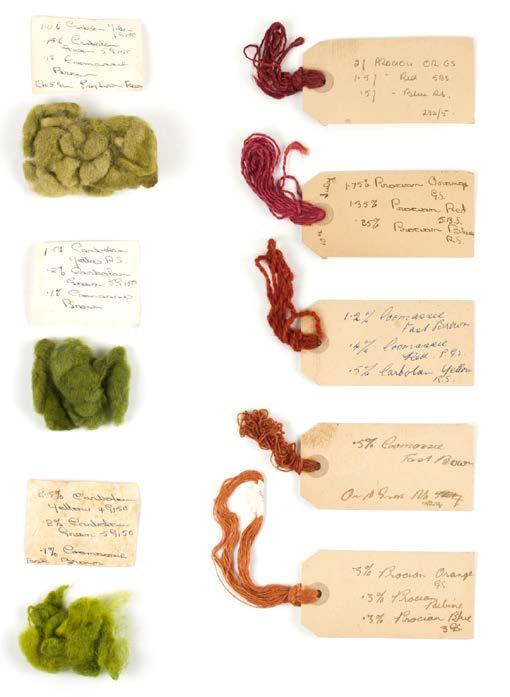 1.0% Carbolan Yellow
Carbolan
Green 5G,150
.1% Coomassie
Brown
Carbolan
Yellow R.S.
.2% Carbolan
Green 5G,150
.1% Coomassie
Brown
Carbolan
Yellow 4G,150
.2% Carbolan
Green 5G,150
.1% Coomassie
Fast Brown
2% PROCION OR GS
1.5% - Red 5BS
.5% - Blue RS.
July
1.75% Procion Orange
GS.
1.35% Procion Red
5.B.S.
.25% Procion Blue
R.S.
1.2% Coomassie
Fast Brown
.4% Coomassie
Red P.G.S.
.5% Carbolan Yellow
R.S.
.5% Coomassie
Fast Brown
.3% Procion Orange
GS.
.3% Procion
Rubine
.3% Procion Blue
3G.